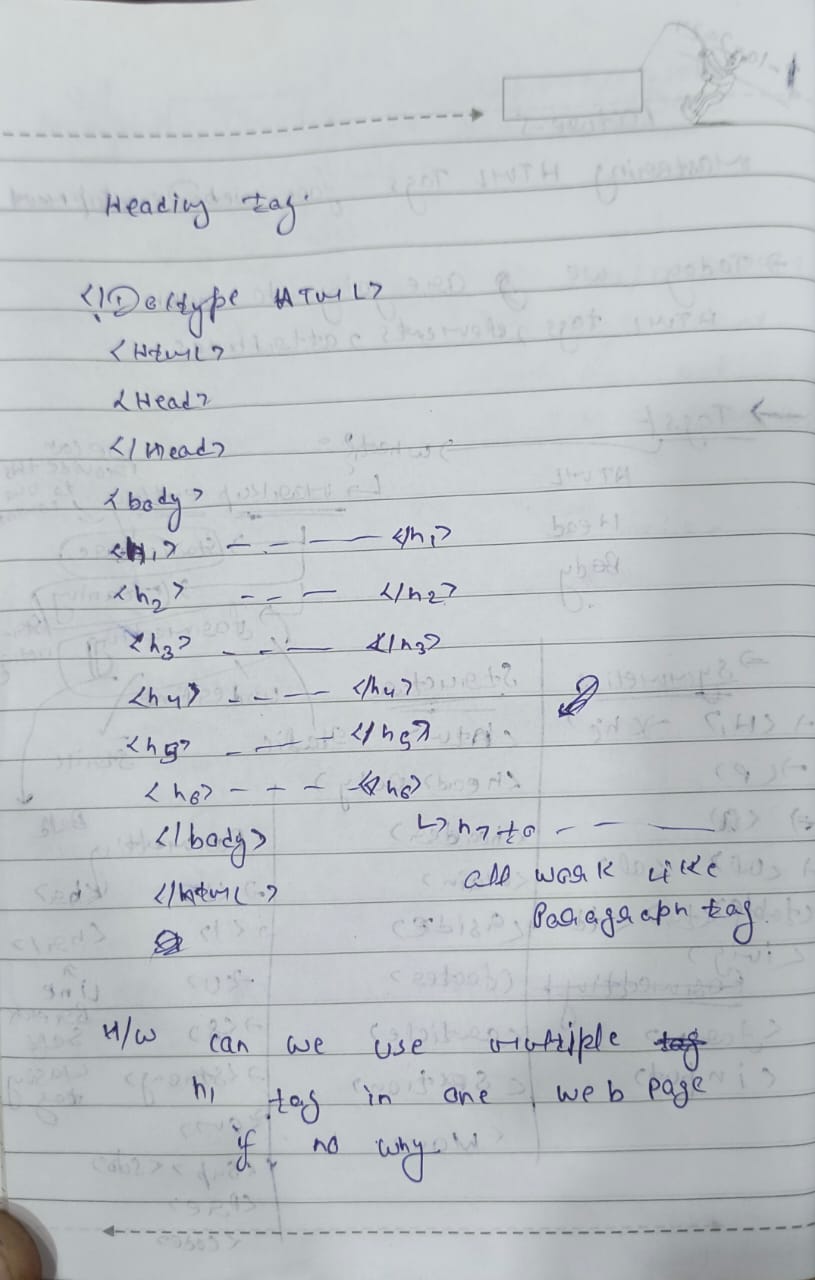 Heading tag.
<!Doctype HTML>
<Html>
<Head>
</Head>
<body>
<H1> - - - </h1>
<h2> - - - </h2>
<h3> - - - </h3>
<h4> - - - </h4>
<h5> - - - </h5>
<h6> - - - </h6>
</body> ↳ h7 to - - -
</html> all work like
Paragraph tag
H/W can we use multiple tag
h1 tag in one web page
if no why.